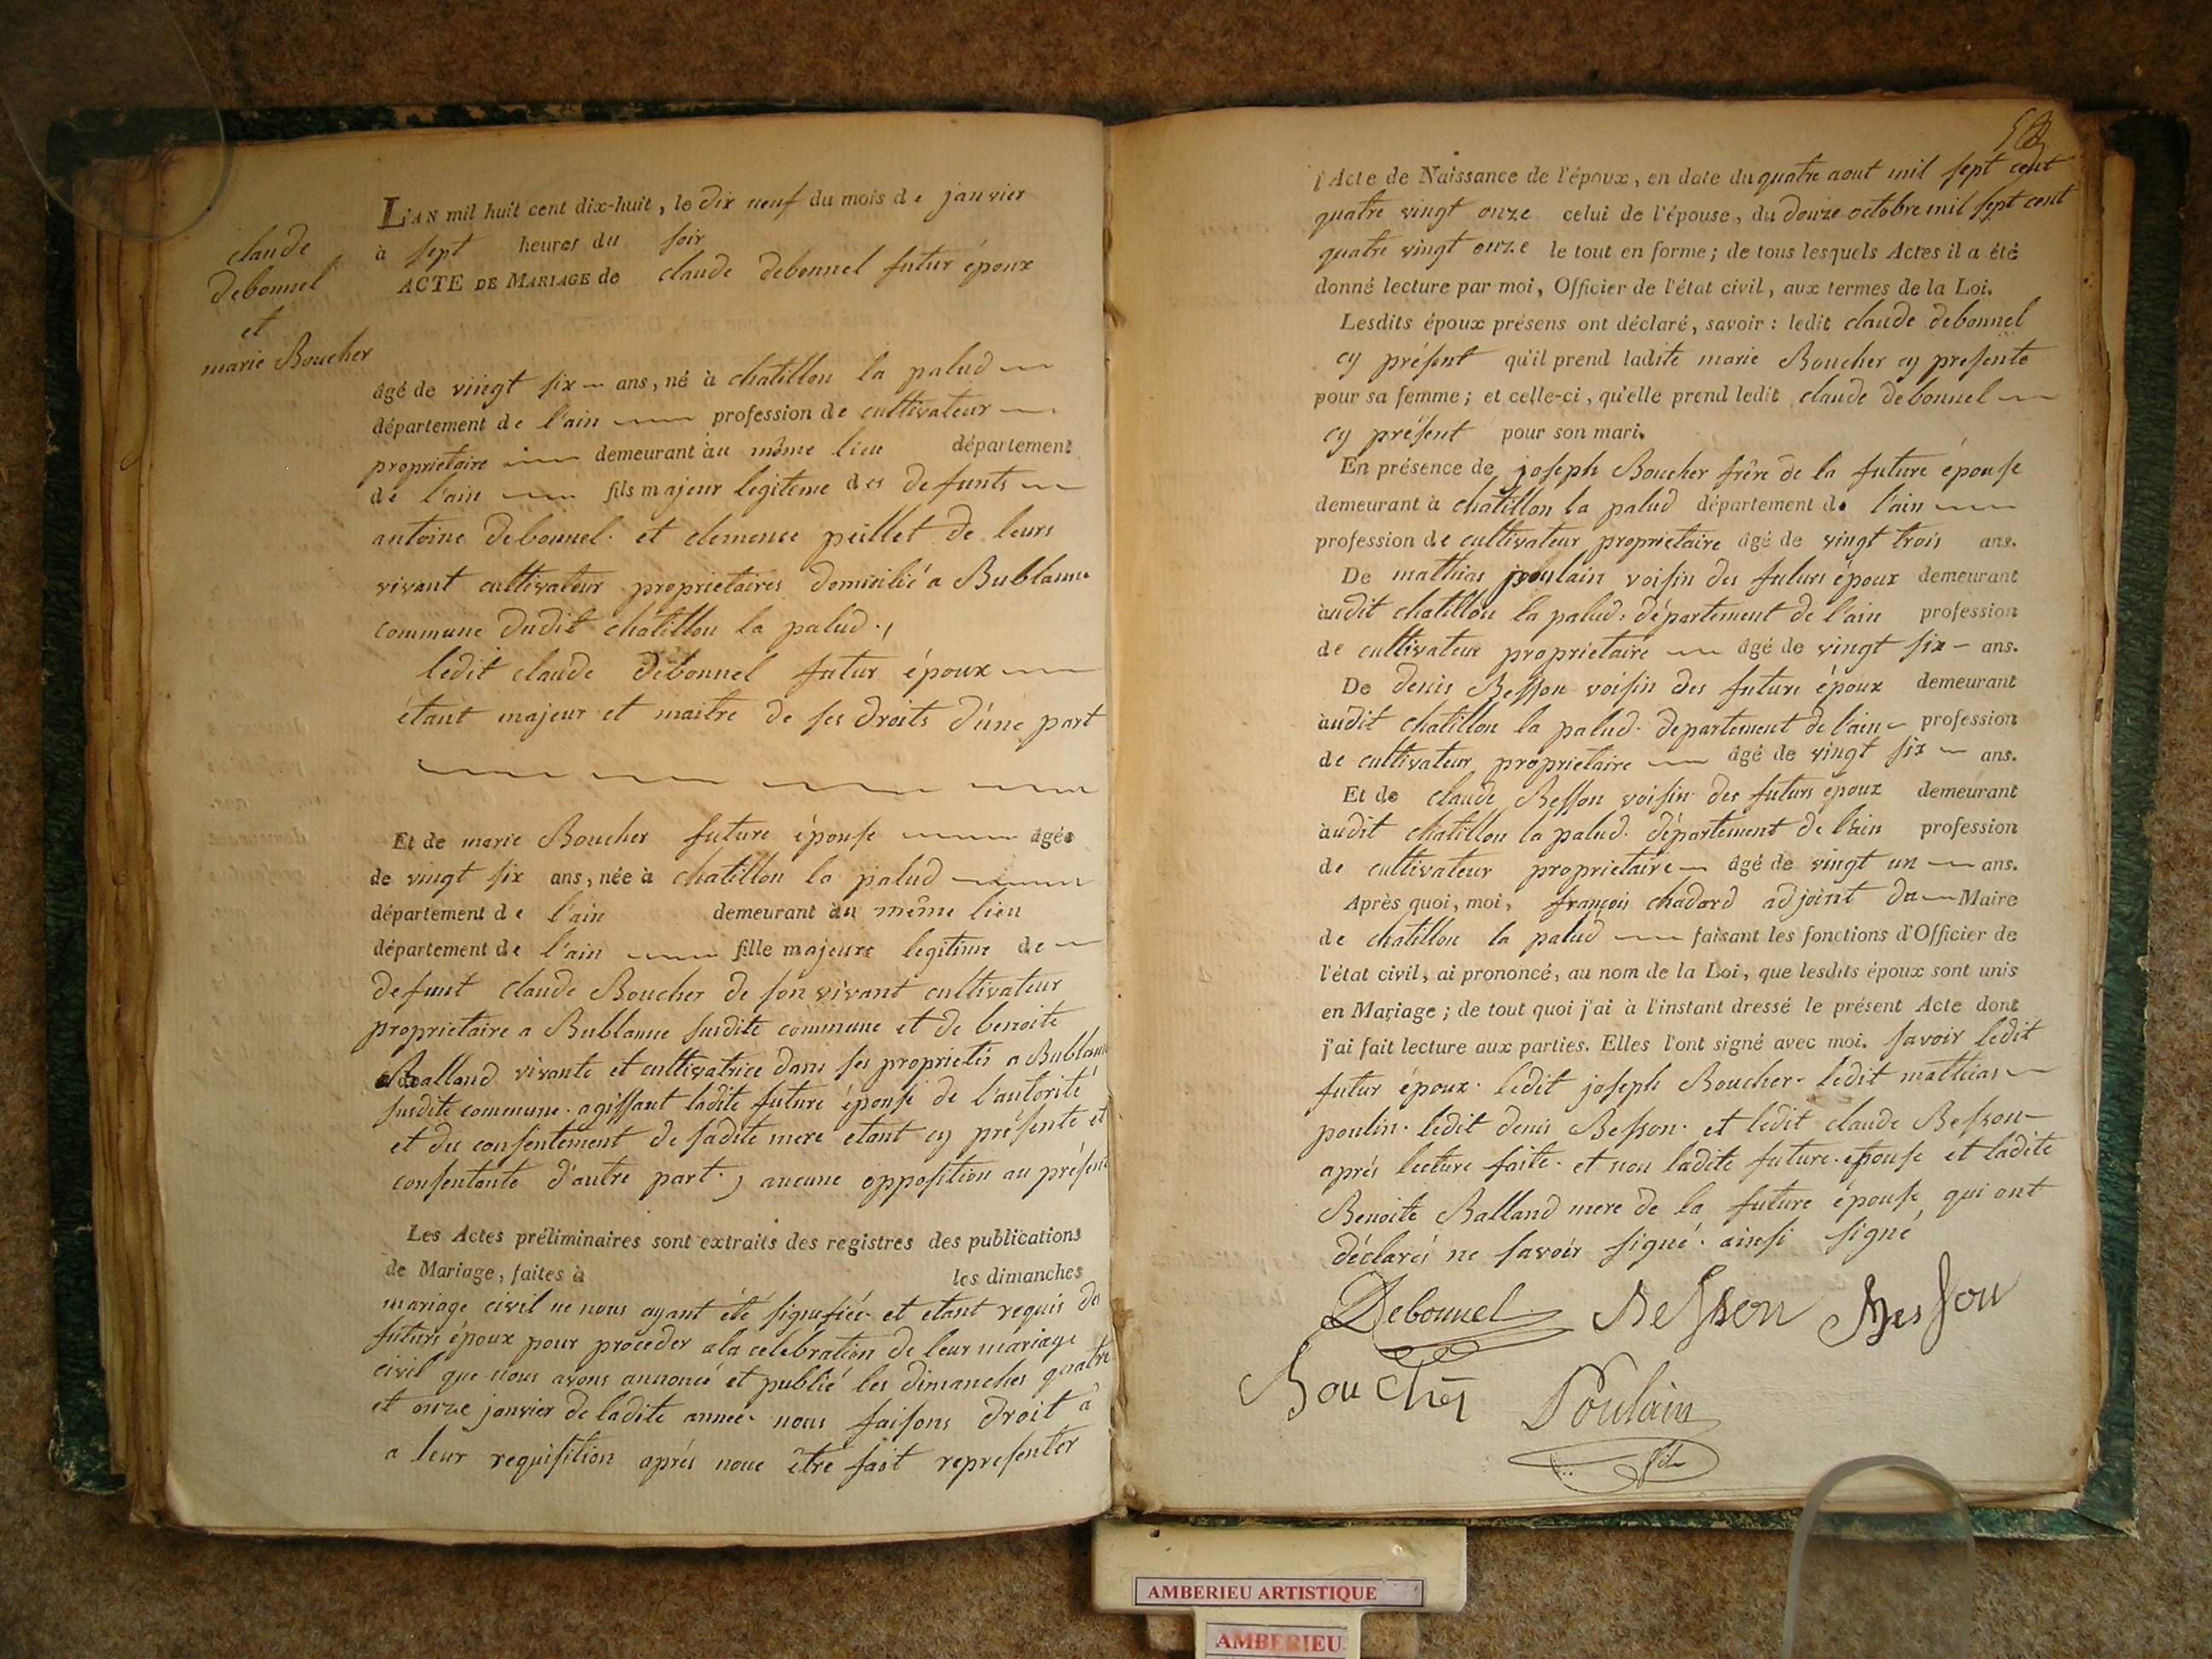 claude
debonnel
et
marie Boucher
L'AN mil huit cent dix-huit, le dix neuf du mois de janvier
à sept heures du soir
ACTE DE MARIAGE de claude debonnel futur époux
âgé de vingt six ans, né à chatillon la palud
département de l'ain profession de cultivateur
proprietaire demeurant au même lieu département
de l'ain fils majeur legiteme des defunts
antoine debonnel et clemence peillet de leurs
vivant cultivateur proprietaires domicilié a Bublanne
commune dudit chatillon la palud.,
ledit claude debonnel futur époux
étant majeur et maitre de ses droits d'une part
Et de marie Boucher future épouse âgée
de vingt six ans, née à chatillon la palud
département de l'ain demeurant au même lieu
département de l'ain fille majeure legitime de
defunt claude Boucher de son vivant cultivateur
proprietaire a Bublanne susdite commune et de benoite
Balland vivante et cultivatrice dans ses proprietés a Bublanne
susdite commune. agissant ladite future épouse de l'autorité
et du consentement de sadite mere etant cy présente et
consentante d'autre part., aucune opposition au présent
Les Actes préliminaires sont extraits des registres des publications
de Mariage, faites à les dimanches
mariage civil ne nous ayant été signifiée et etant requis des
futurs époux pour proceder a la celebration de leur mariage
civil que nous avons annoncé et publié les dimanches quatre
et onze janvier de ladite annee. nous faisons droit à
a leur requisition aprés nous être fait representer
l'Acte de Naissance de l'époux, en date du quatre aout mil sept cent
quatre vingt onze celui de l'épouse, du douze octobre mil sept cent
quatre vingt onze le tout en forme; de tous lesquels Actes il a été
donné lecture par moi, Officier de l'état civil, aux termes de la Loi.
Lesdits époux présens ont déclaré, savoir: ledit claude debonnel
cy présent qu'il prend ladite marie Boucher cy presente
pour sa femme; et celle-ci, qu'elle prend ledit claude debonnel
cy présent pour son mari.
En présence de joseph Boucher frére de la future épouse
demeurant à chatillon la palud département de l'ain
profession de cultivateur proprietaire âgé de vingt trois ans.
De mathias poulain voisin des futurs époux demeurant
audit chatillon la palud. département de l'ain profession
de cultivateur proprietaire âgé de vingt six ans.
De denis Besson voisin des futurs époux demeurant
audit chatillon la palud. departement de l'ain profession
de cultivateur proprietaire âgé de vingt six ans.
Et de claude Besson voisin des futurs époux demeurant
audit chatillon la palud. département de l'ain profession
de cultivateur proprietaire âgé de vingt un ans.
Après quoi, moi, françois chadard adjoint du Maire
de chatillon la palud faisant les fonctions d'Officier de
l'état civil, ai prononcé, au nom de la Loi, que lesdits époux sont unis
en Mariage; de tout quoi j'ai à l'instant dressé le présent Acte dont
j'ai fait lecture aux parties. Elles l'ont signé avec moi. savoir ledit
futur époux. ledit joseph Boucher. ledit mathias
poulin. ledit denis Besson. et ledit claude Besson
aprés lecture faite. et non ladite future épouse et ladite
Benoite Balland mere de la future épouse, qui ont
déclarés ne savoir signé. ainsi signé
Debonnel Besson Besson
Boucher Poulain
AMBERIEU ARTISTIQUE
AMBERIEU